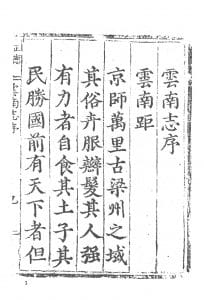 雲南志序
雲南距
京師萬里古梁州之域
其俗卉服辮髮其人强
有力者自食其土子其
民勝國前有天下者但